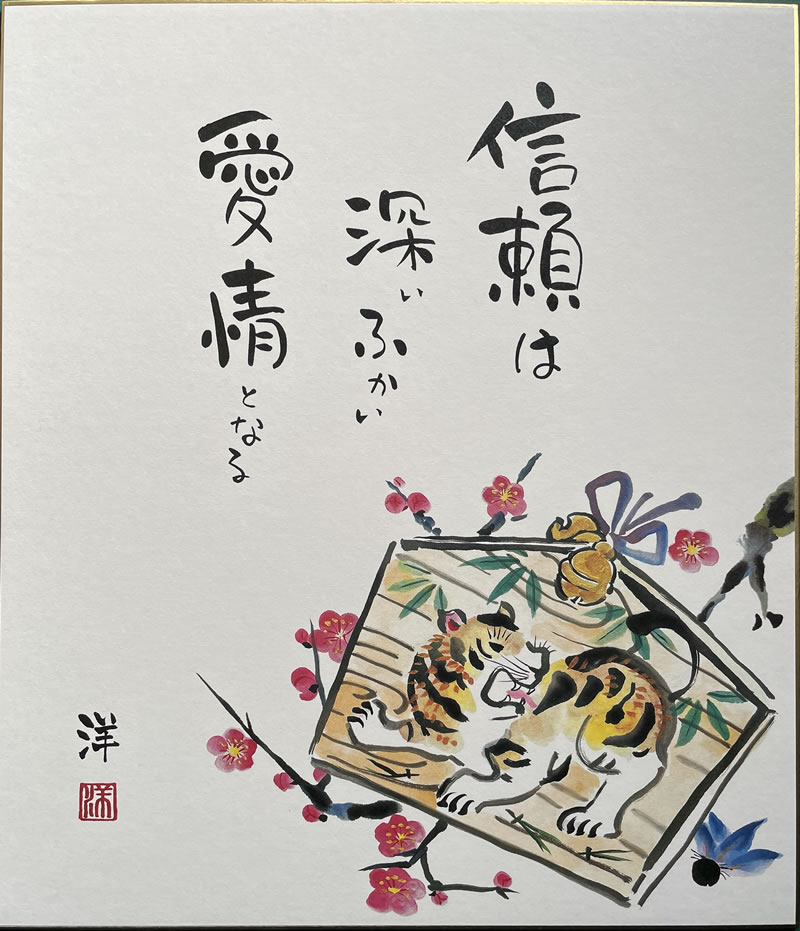 信頼は
深いふかい
愛情となる
洋
洋